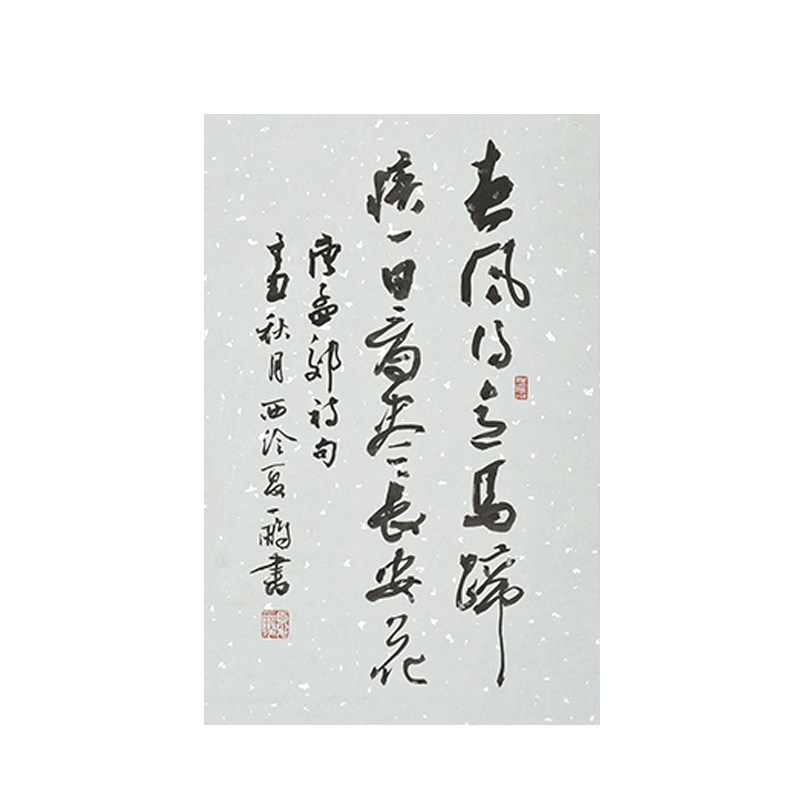 春風得意馬蹄
疾一日看尽長安花
唐孟郊詩句
辛丑秋月西泠夏一鵬書